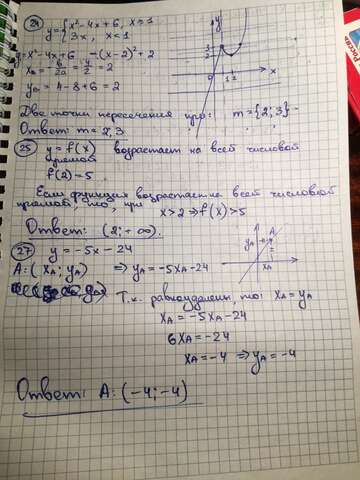 24 y = { x² - 4x + 6, x ≥ 1
3x, x < 1
y = x² - 4x + 6 = (x - 2)² + 2
x₀ = -b/2a = 4/2 = 2
y₀ = 4 - 8 + 6 = 2
Две точки пересечения при: m = {2; 3}
Ответ: m = 2; 3.
25 y = f(x) возрастает на всей числовой
прямой
f(2) = 5
Если функция возрастает на всей числовой
прямой, то, при x > 2 ⇒ f(x) > 5
Ответ: (2; +∞).
27 y = -5x - 24
A: (xA; yA) ⇒ yA = -5xA - 24
Т.к. равноудален, то: xA = yA
xA = -5xA - 24
6xA = -24
xA = -4 ⇒ yA = -4
Ответ: A: (-4; -4)
y
3
2
0
1 2
x
A
A
yA
xA
Россия